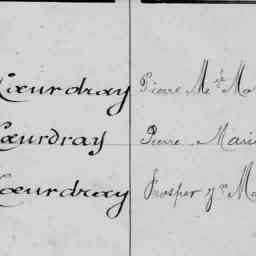 Cœurdray Pierre Me
Cœurdray Pierre Marie
Cœurdray Prosper